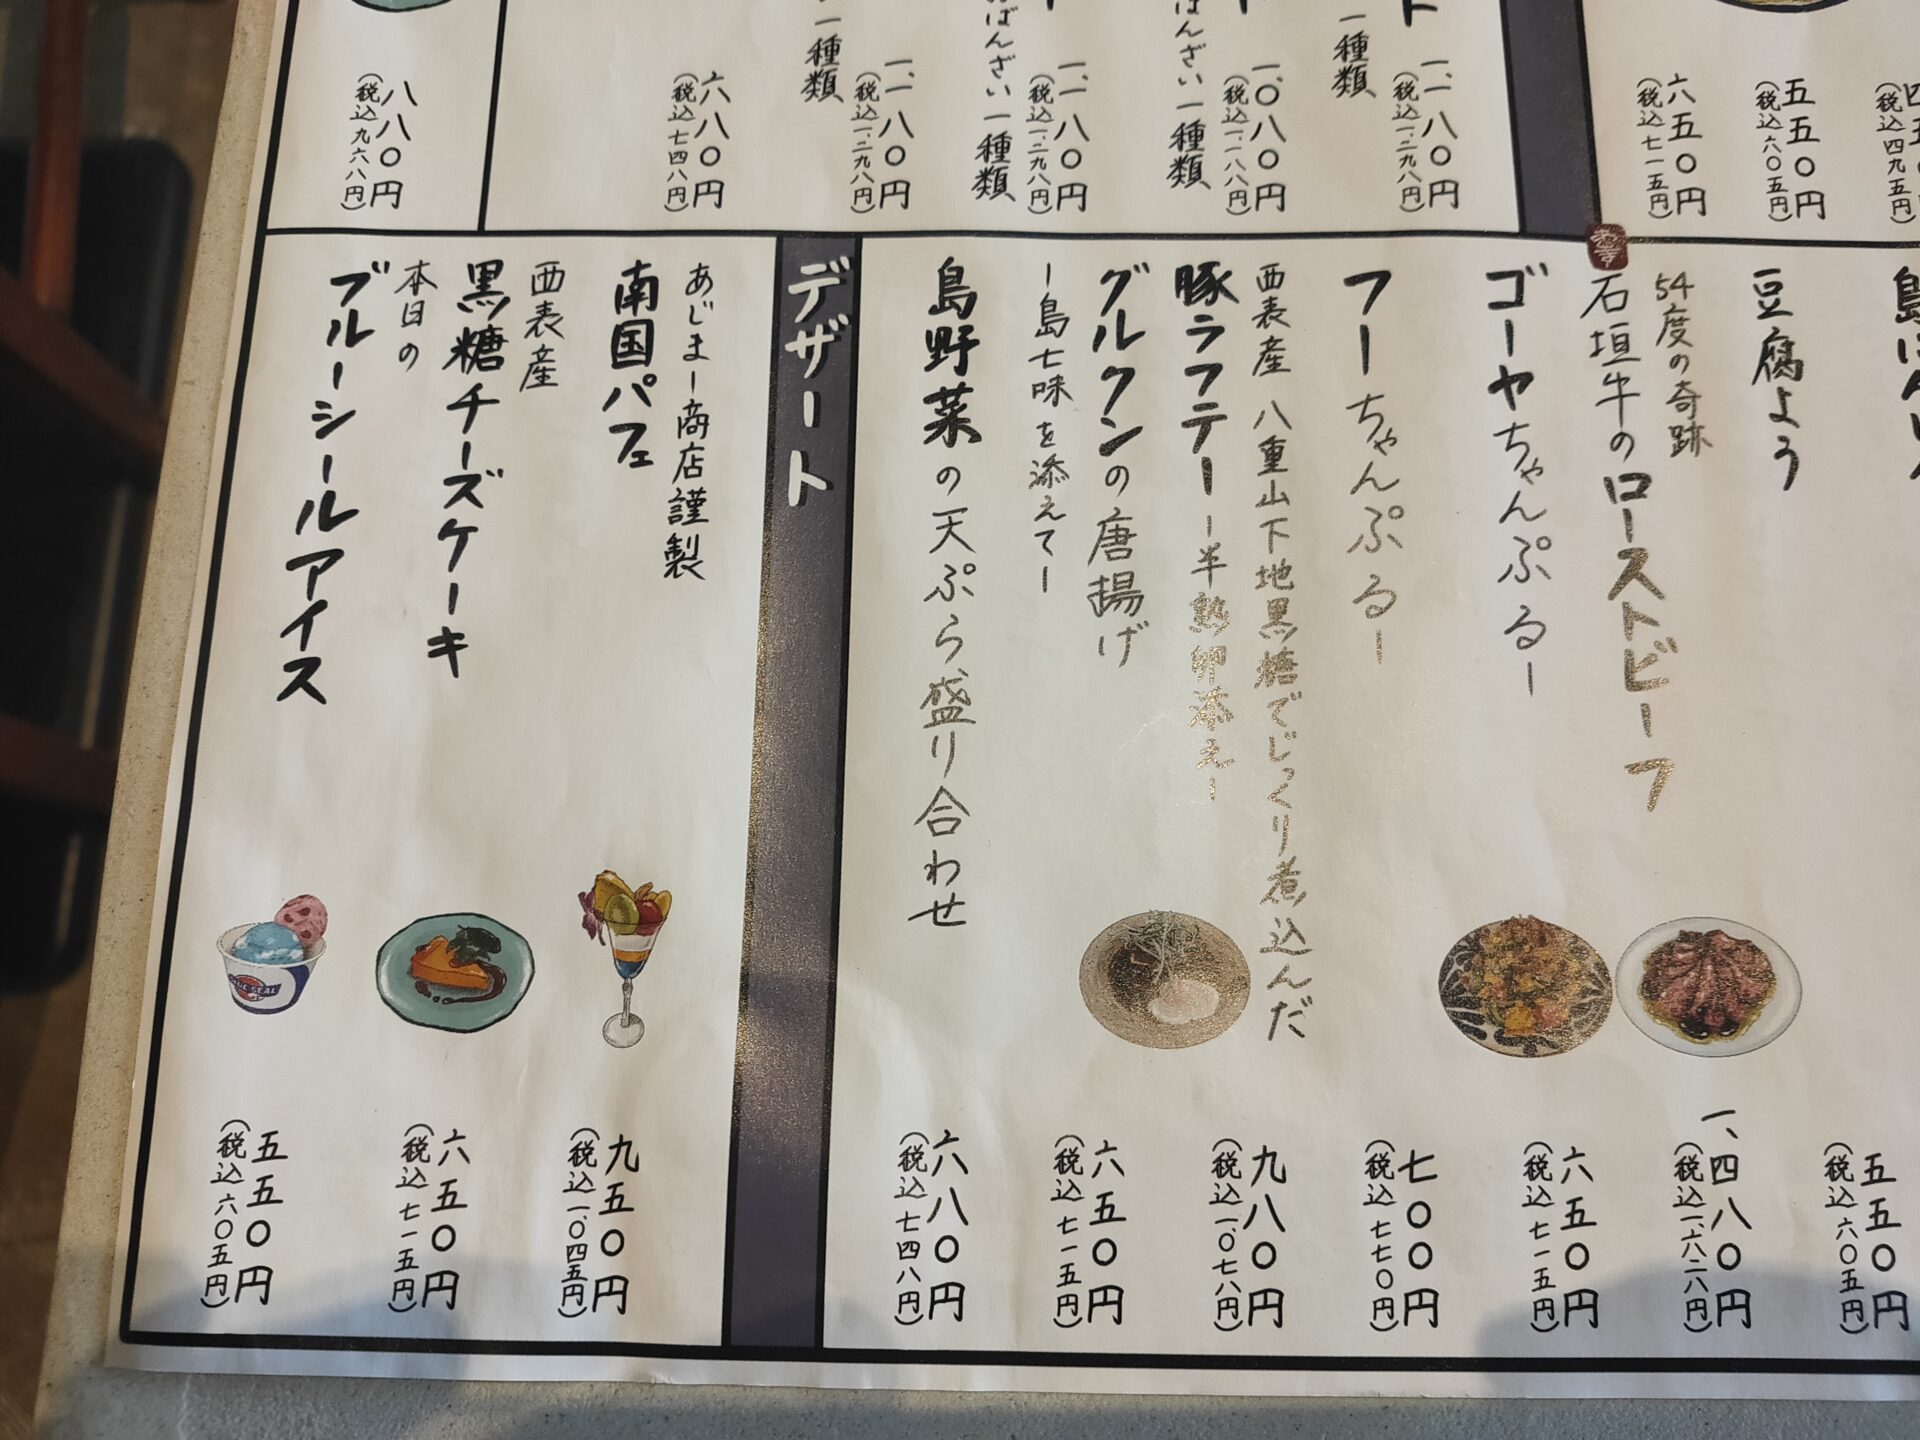 一種類
一、一八〇円
(税込一、二九八円)
ばんざい一種類
一、〇八〇円
(税込一、一八八円)
ばんざい一種類
一、一八〇円
(税込一、二九八円)
一種類
一、一八〇円
(税込一、二九八円)
六八〇円
(税込七四八円)
八八〇円
(税込九六八円)
(税込四九五円)
五五〇円
(税込六〇五円)
六五〇円
(税込七一五円)
豆腐よう
五五〇円
(税込六〇五円)
54度の奇跡
石垣牛のローストビーフ
一、四八〇円
(税込一、六二八円)
ゴーヤちゃんぷるー
六五〇円
(税込七一五円)
フーちゃんぷるー
七〇〇円
(税込七七〇円)
西表産 八重山下地黒糖でじっくり煮込んだ
豚ラフテー ー半熟卵添えー
九八〇円
(税込一、〇七八円)
グルクンの唐揚げ
ー島七味を添えてー
六五〇円
(税込七一五円)
島野菜の天ぷら盛り合わせ
六八〇円
(税込七四八円)
デザート
あじまー商店謹製
南国パフェ
九五〇円
(税込一、〇四五円)
西表産
黒糖チーズケーキ
六五〇円
(税込七一五円)
本日の
ブルーシールアイス
五五〇円
(税込六〇五円)